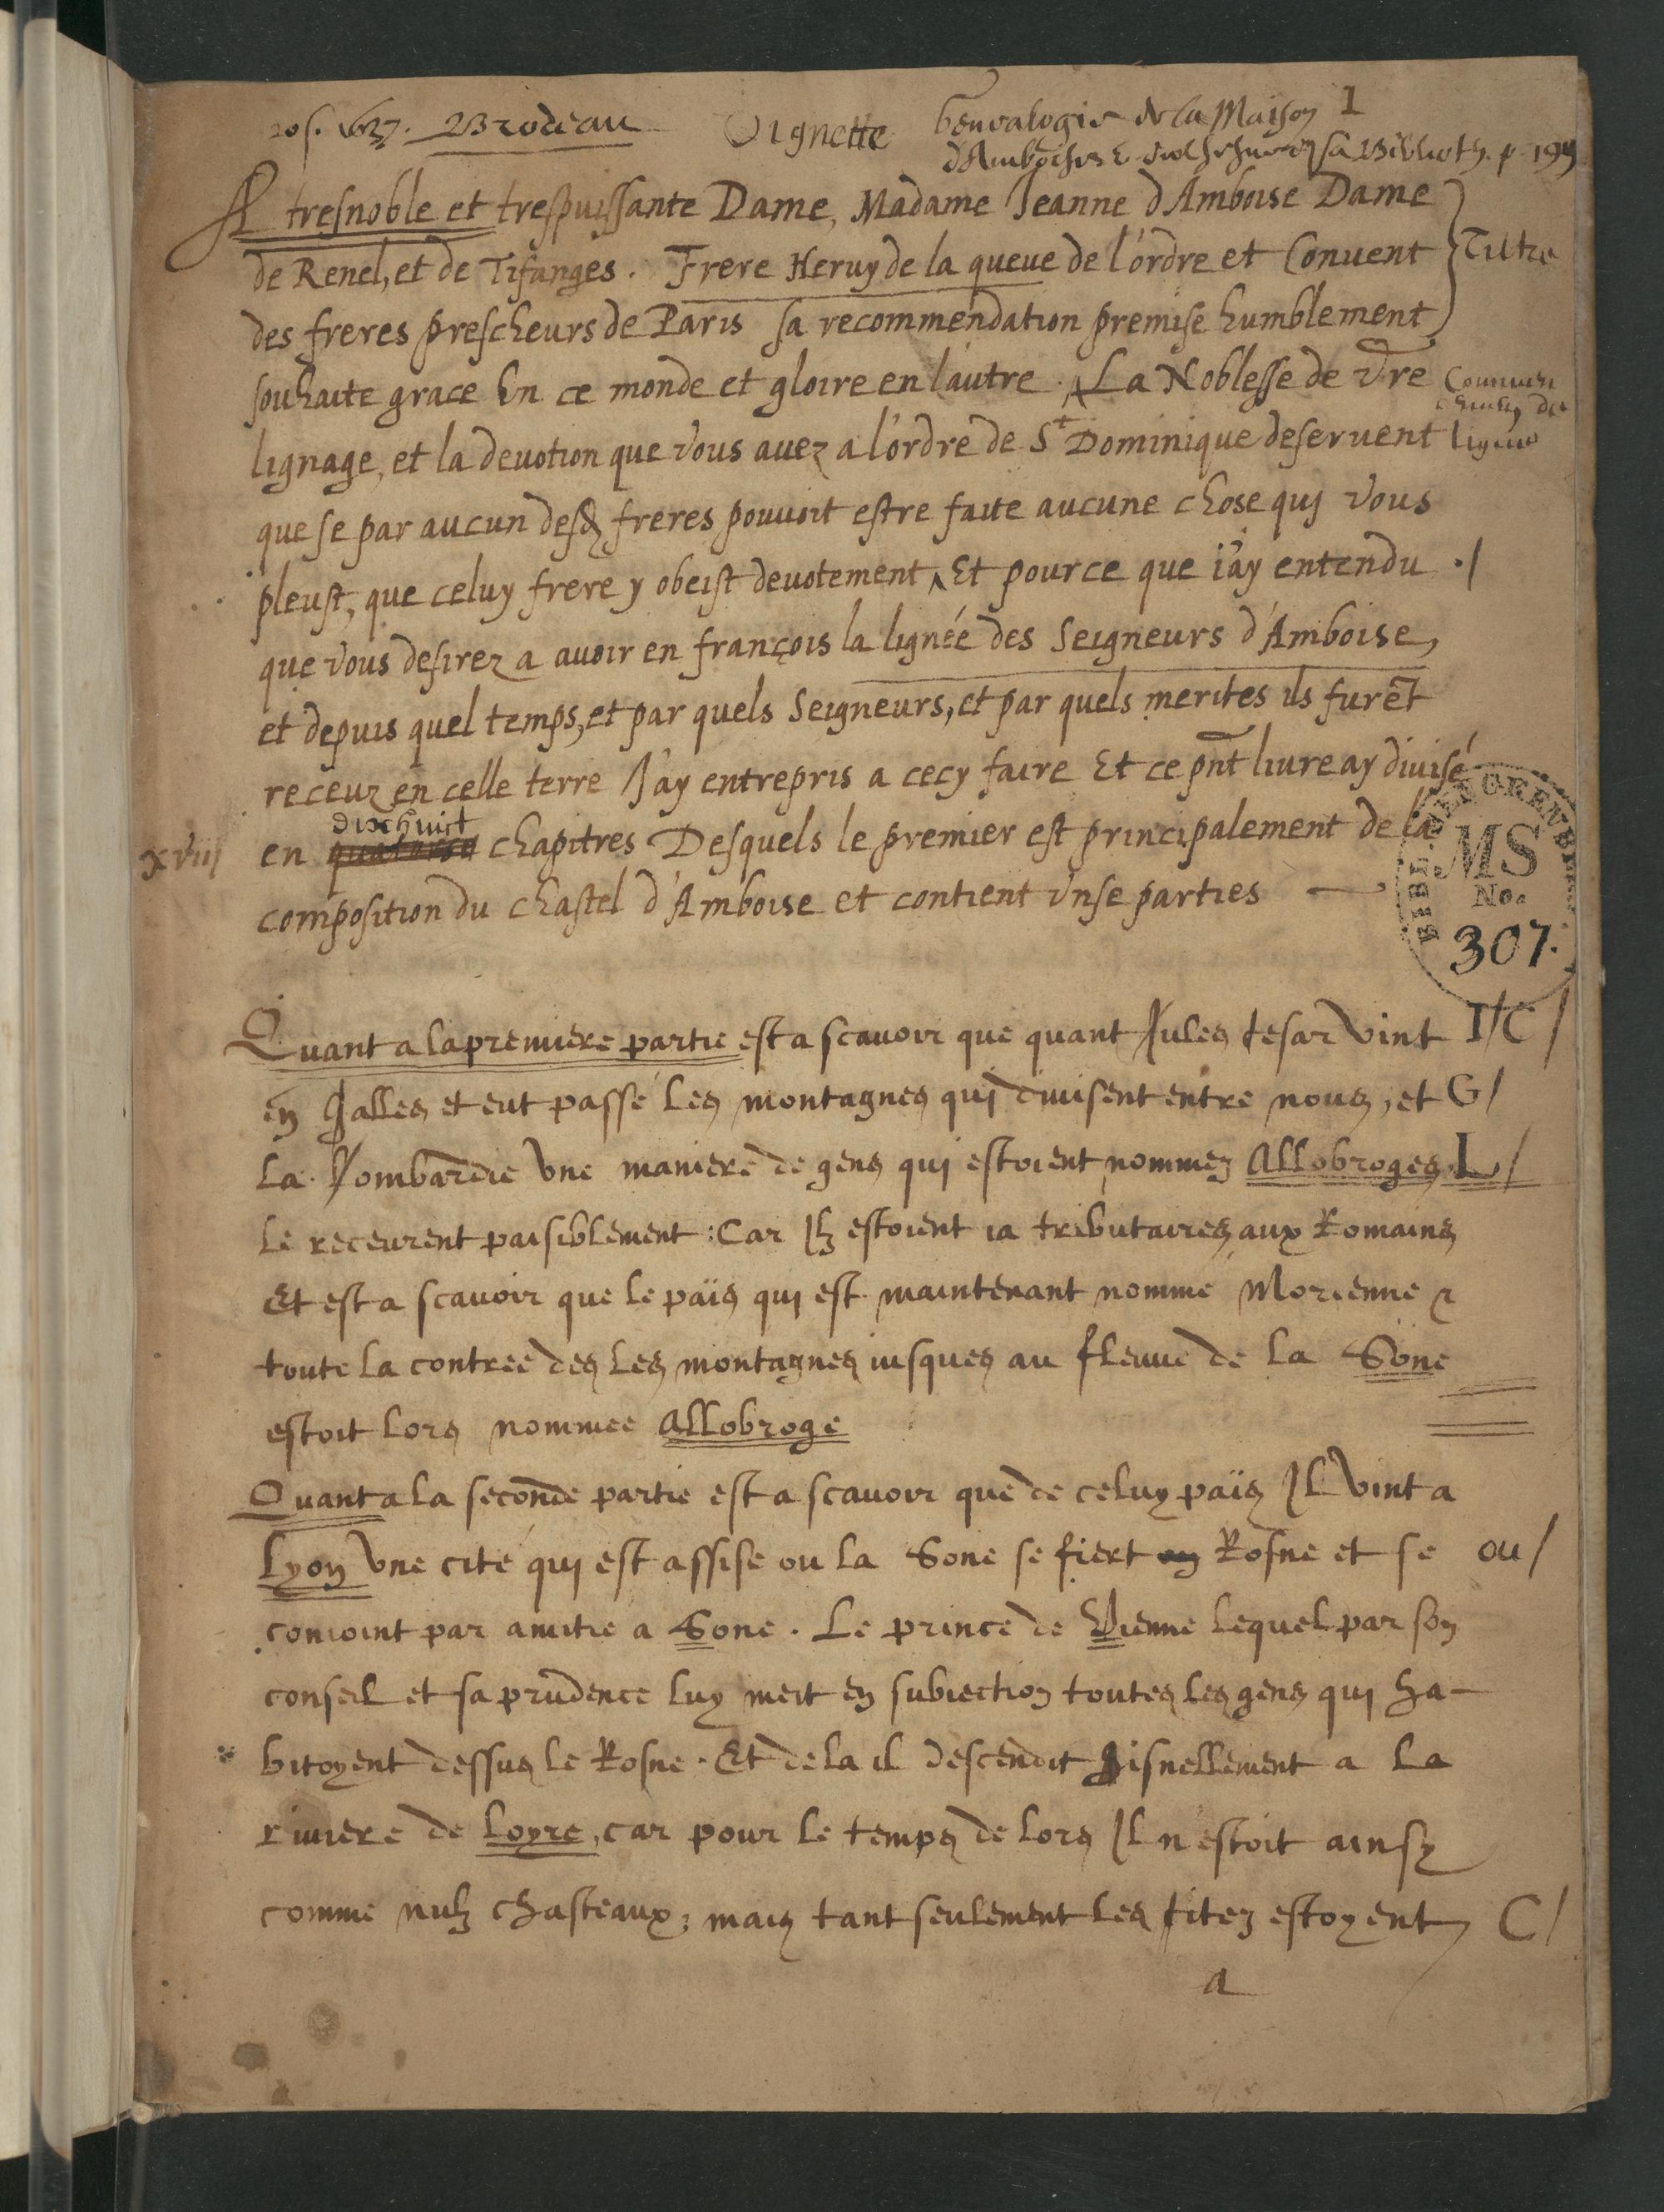 Brodeau Vignette Genealogie de la Maison 1
d'Amboise sa Biblioth. p. 199
A tresnoble et trespuissante Dame, Madame Jeanne d'Amboise Dame
de Renel, et de Tifanges. Frere Heruy de la queue de l'ordre et Conuent Tiltre
des freres prescheurs de Paris sa recommendation premise humblement
souhaite grace En ce monde et gloire en l'autre. La Noblesse de vr̃e
lignage, et la deuotion que vous auez a l'ordre de St Dominique deseruent
que se par aucun desd freres pouuoit estre faite aucune chose quj vous
pleust, que celuy frere y obeist deuotement, Et pource que i'ay entendu ./
que vous desirez a auoir en françois la lignée des Seigneurs d'Amboise,
et depuis quel temps, et par quels Seigneurs, et par quels merites ils furẽt
receuz en celle terre J'ay entrepris a cecy faire Et ce pñt liure ay diuisé
dixhuict
xviij en quatorse chapitres Desquels le premier est principalement de la
composition du chastel d'Amboise et contient vnse parties
BIBL.
MS
No.
307.
Quant a la premiere partie est a scauoir que quant Jules Cesar vint I/C/
en Galles et eut passé les montagnes qui diuisent entre nous, et G/
la Lombardie vne maniere de gens qui estoient nommez Allobroges L/
le receurent paisiblement: Car Ilz estoient ia tributaires aux Romains
Et est a scauoir que le païs quj est maintenant nomme Morienne &
toute la contree des les montagnes iusques au fleuue de la Sone
estoit lors nommee Allobroge
Quant a la seconde partie est a scauoir que de celuy païs Il vint a
Lyon vne cité quj est assise ou la Sone se fiert au Rosne et se ou/
conioint par amitie a Sone. Le prince de Vienne lequel par son
conseil et sa prudence luy meit en subiection toutes les gens quj ha-
bitoyent dessus le Rosne. Et de la il descendit Jisnellement a la
riuiere de Loyre, car pour le temps de lors Il n'estoit ainsy
comme nulz chasteaux; mais tant seulement les Citez estoyent C/
a